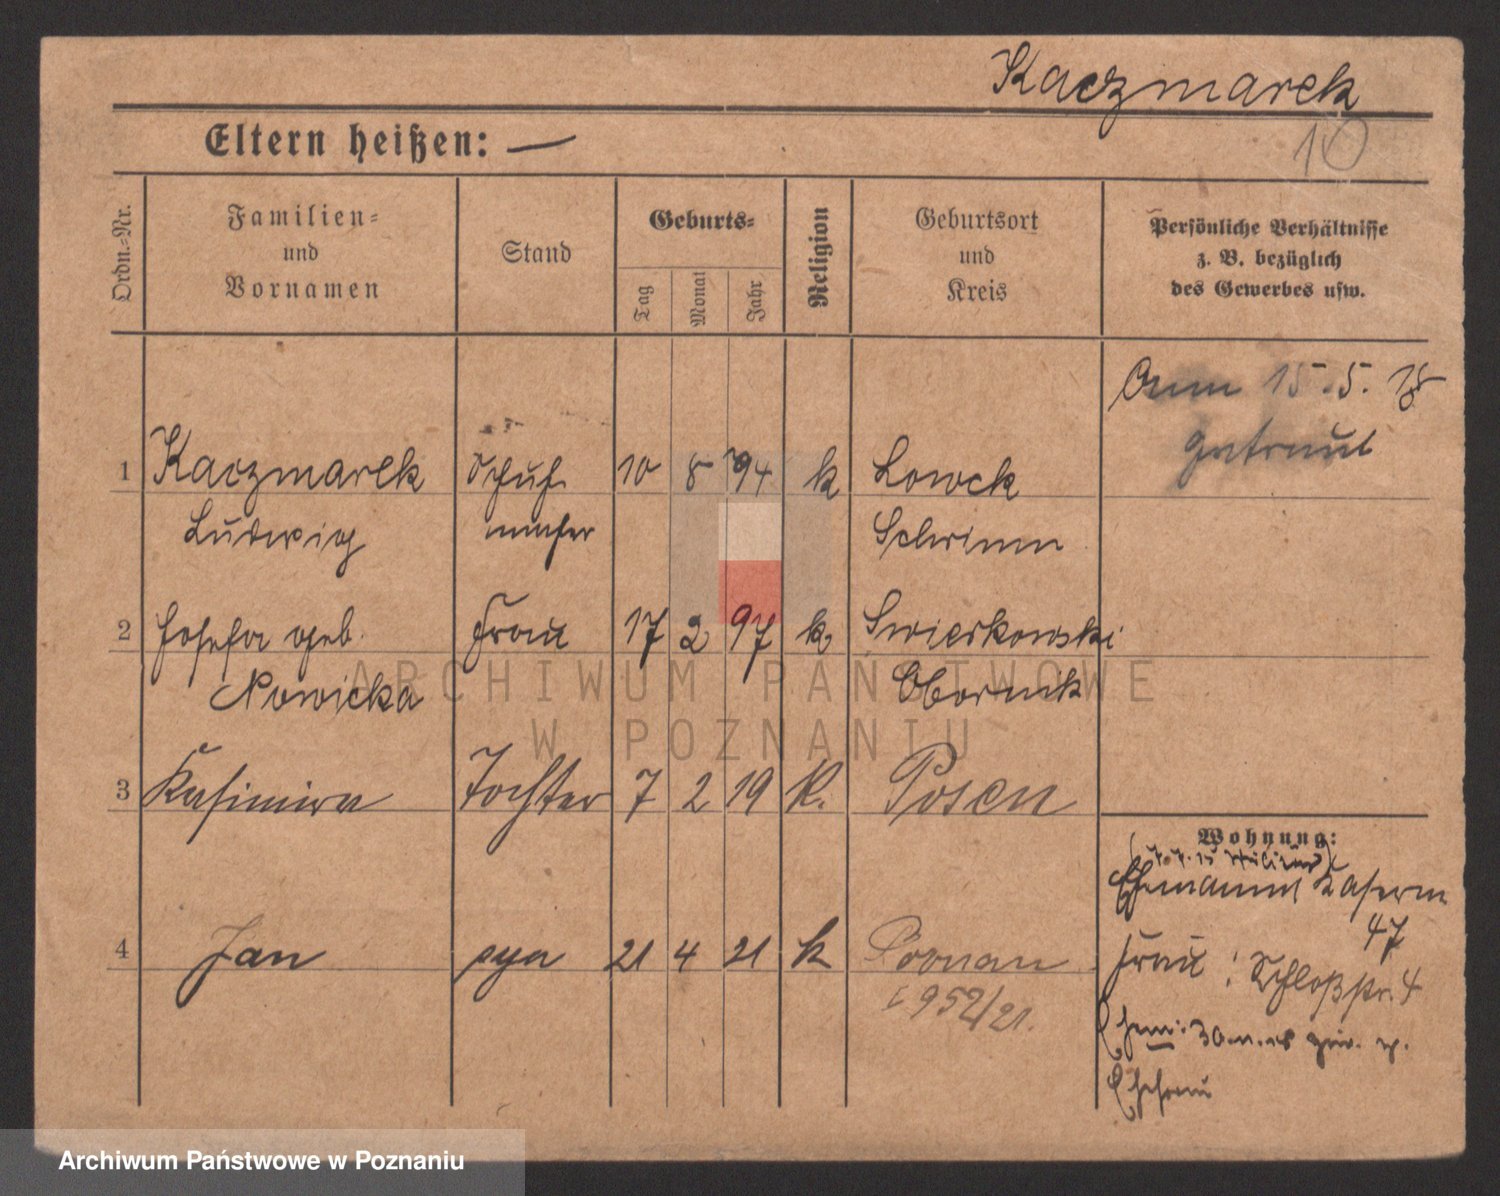 Kaczmarek
Eltern heißen: —
10
Ordn.-Nr.
Familien- und Vornamen
Stand
Geburts-
Tag
Monat
Jahr
Religion
Geburtsort und Kreis
Persönliche Verhältnisse
z. B. bezüglich
des Gewerbes usw.
15.5.18
getraut
1 Kaczmarek Schuh 10 8 94 k Lowek
Ludwig macher Schrimm
2 Josefa geb. Frau 17 2 97 k. Swierkowski
Nowicka Obornik
3 Kasimira Tochter 7 2 19 k. Posen
Wohnung:
Ehemann Kaserne
47
4 Jan syn 21 4 21 k Poznan
Frau: Schloßstr. 4
952/21.
Ehem: 30.11.18
Ehefrau
ARCHIWUM PAŃSTWOWE
W POZNANIU
Archiwum Państwowe w Poznaniu